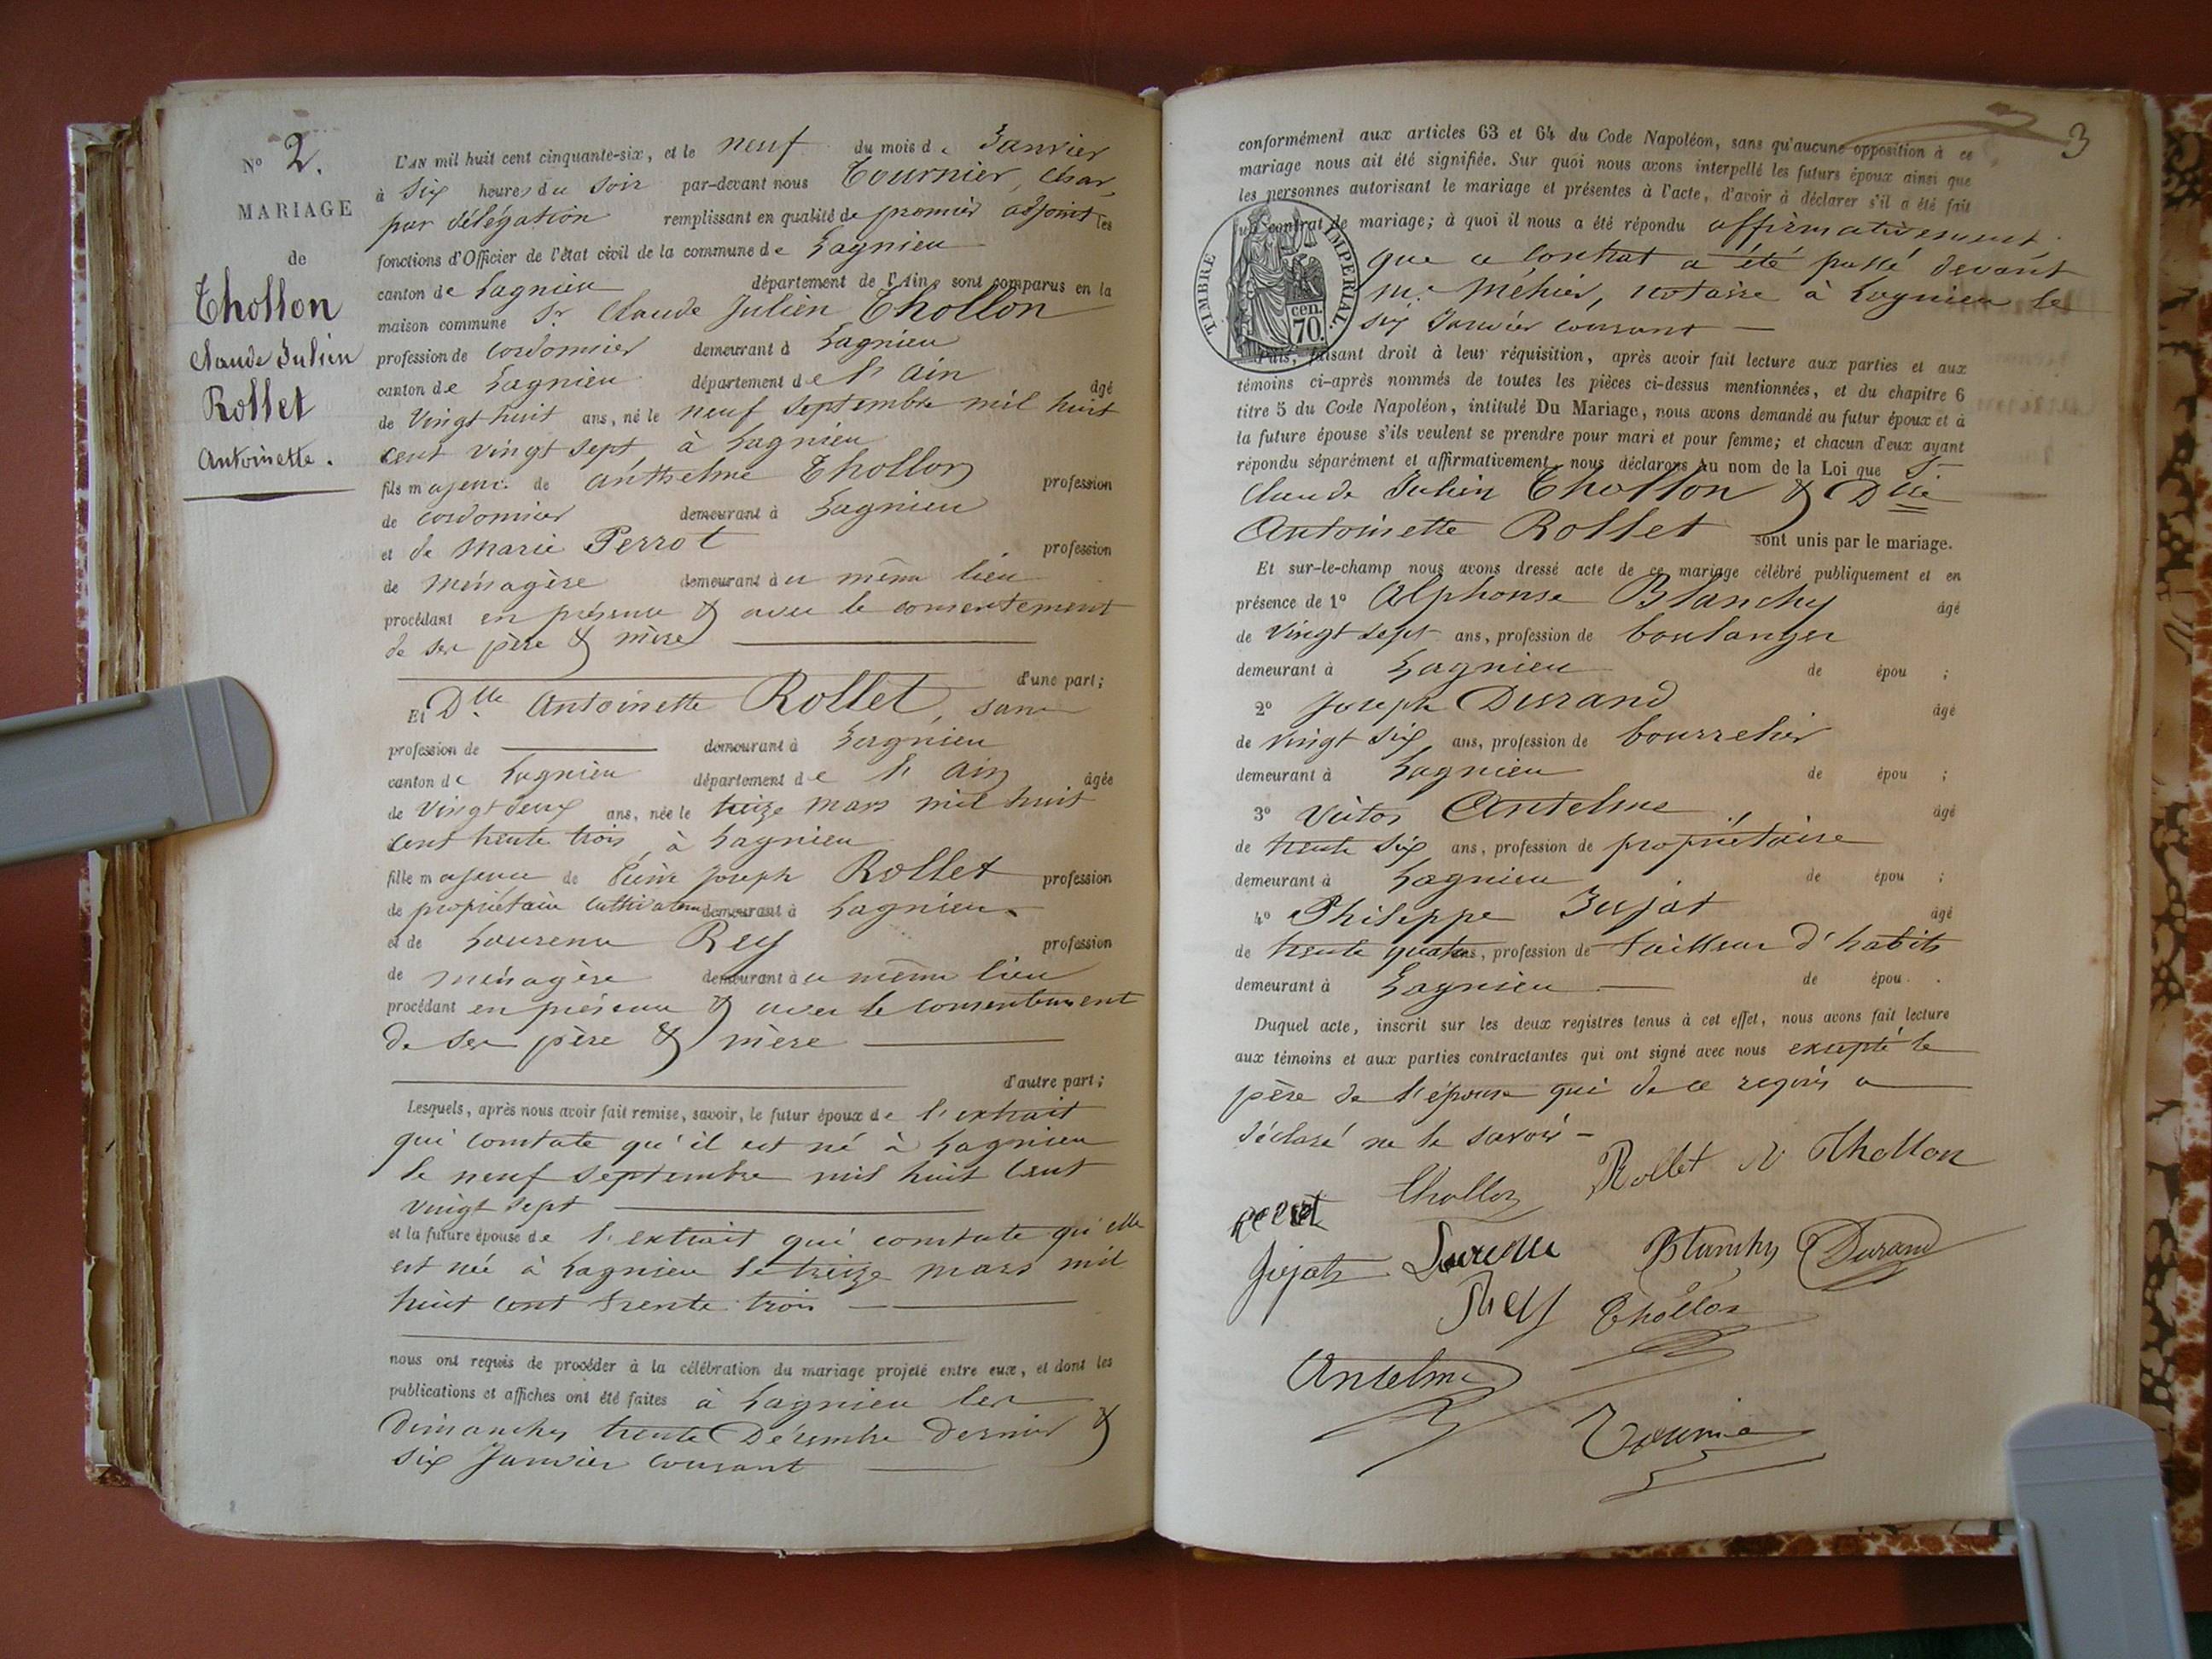 N° 2.
MARIAGE
de
Thollon
Claude Julien
Rollet
Antoinette.
L'AN mil huit cent cinquante-six, et le neuf du mois de Janvier
à Six heures du Soir par-devant nous Tournier, Char,
par délégation remplissant en qualité de premier adjoint les
fonctions d'Officier de l'état civil de la commune de Lagnieu
canton de Lagnieu département de l'Ain, sont comparus en la
maison commune Sr Claude Julien Thollon
profession de cordonnier demeurant à Lagnieu
canton de Lagnieu département de l'ain âgé
de Vingt huit ans, né le neuf Septembre mil huit
cent vingt sept, à Lagnieu
fils majeur de anthelme Thollon profession
de cordonnier demeurant à Lagnieu
et de Marie Perrot profession
de Ménagère demeurant au même lieu
procédant en présence & avec le consentement
de ses père & mère
d'une part;
Et Dlle Antoinette Rollet, sans
profession de demeurant à Lagnieu
canton de Lagnieu département de l'ain âgée
de Vingt deux ans, née le treize mars mil huit
cent trente trois, à Lagnieu
fille majeure de Pierre Joseph Rollet profession
de propriétaire cultivateur demeurant à Lagnieu
et de Laurence Rey profession
de ménagère demeurant au même lieu
procédant en présence & avec le consentement
de ses père & mère
d'autre part;
Lesquels, après nous avoir fait remise, savoir, le futur époux de l'extrait
qui constate qu'il est né à Lagnieu
le neuf Septembre mil huit cent
vingt sept
et la future épouse de l'extrait qui constate qu'elle
est née à Lagnieu le treize mars mil
huit cent trente trois
nous ont requis de procéder à la célébration du mariage projeté entre eux, et dont les
publications et affiches ont été faites à Lagnieu les
dimanches trente Décembre dernier &
six Janvier courant
3
conformément aux articles 63 et 64 du Code Napoléon, sans qu'aucune opposition à ce
mariage nous ait été signifiée. Sur quoi nous avons interpellé les futurs époux ainsi que
les personnes autorisant le mariage et présentes à l'acte, d'avoir à déclarer s'il a été fait
un contrat de mariage; à quoi il nous a été répondu affirmativement
que ce contrat a été passé devant
Me Méhier, notaire à Lagnieu le
six Janvier courant
TIMBRE IMPERIAL.
70. cen.
Puis, faisant droit à leur réquisition, après avoir fait lecture aux parties et aux
témoins ci-après nommés de toutes les pièces ci-dessus mentionnées, et du chapitre 6
titre 5 du Code Napoléon, intitulé Du Mariage, nous avons demandé au futur époux et à
la future épouse s'ils veulent se prendre pour mari et pour femme; et chacun d'eux ayant
répondu séparément et affirmativement, nous déclarons Au nom de la Loi que Sr
Claude Julien Thollon & Dlle
Antoinette Rollet sont unis par le mariage.
Et sur-le-champ nous avons dressé acte de ce mariage célébré publiquement et en
présence de 1° Alphonse Blanchy âgé
de Vingt sept ans, profession de boulanger
demeurant à Lagnieu de épou ;
2° Joseph Durand âgé
de Vingt six ans, profession de bourrelier
demeurant à Lagnieu de épou ;
3° Victor Antelme âgé
de trente six ans, profession de propriétaire
demeurant à Lagnieu de épou ;
4° Philippe Jujat âgé
de trente quatre ans, profession de tailleur d'habits
demeurant à Lagnieu de épou .
Duquel acte, inscrit sur les deux registres tenus à cet effet, nous avons fait lecture
aux témoins et aux parties contractantes qui ont signé avec nous excepté le
père de l'épouse qui de ce requis a
déclaré ne le savoir
Thollon Rollet Thollon
perrot
Jujat Laurence Blanchy Durand
Rey Thollon
Antelme
Tournier